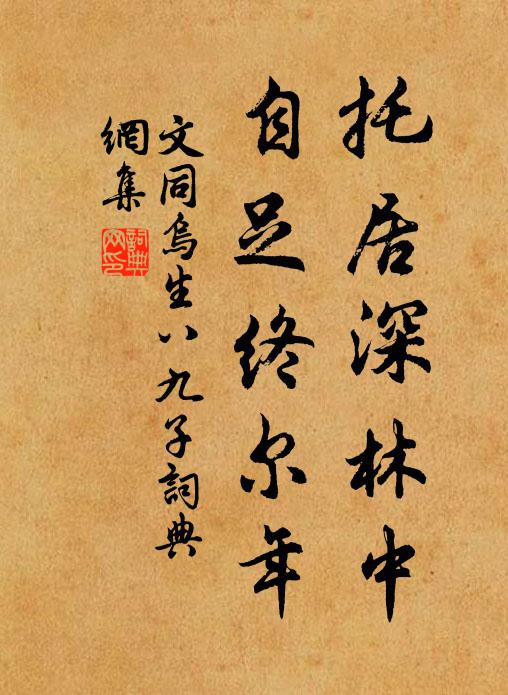 托居深林中
自足终尔年
文同乌生八九子詞典
網集
詞典
网印